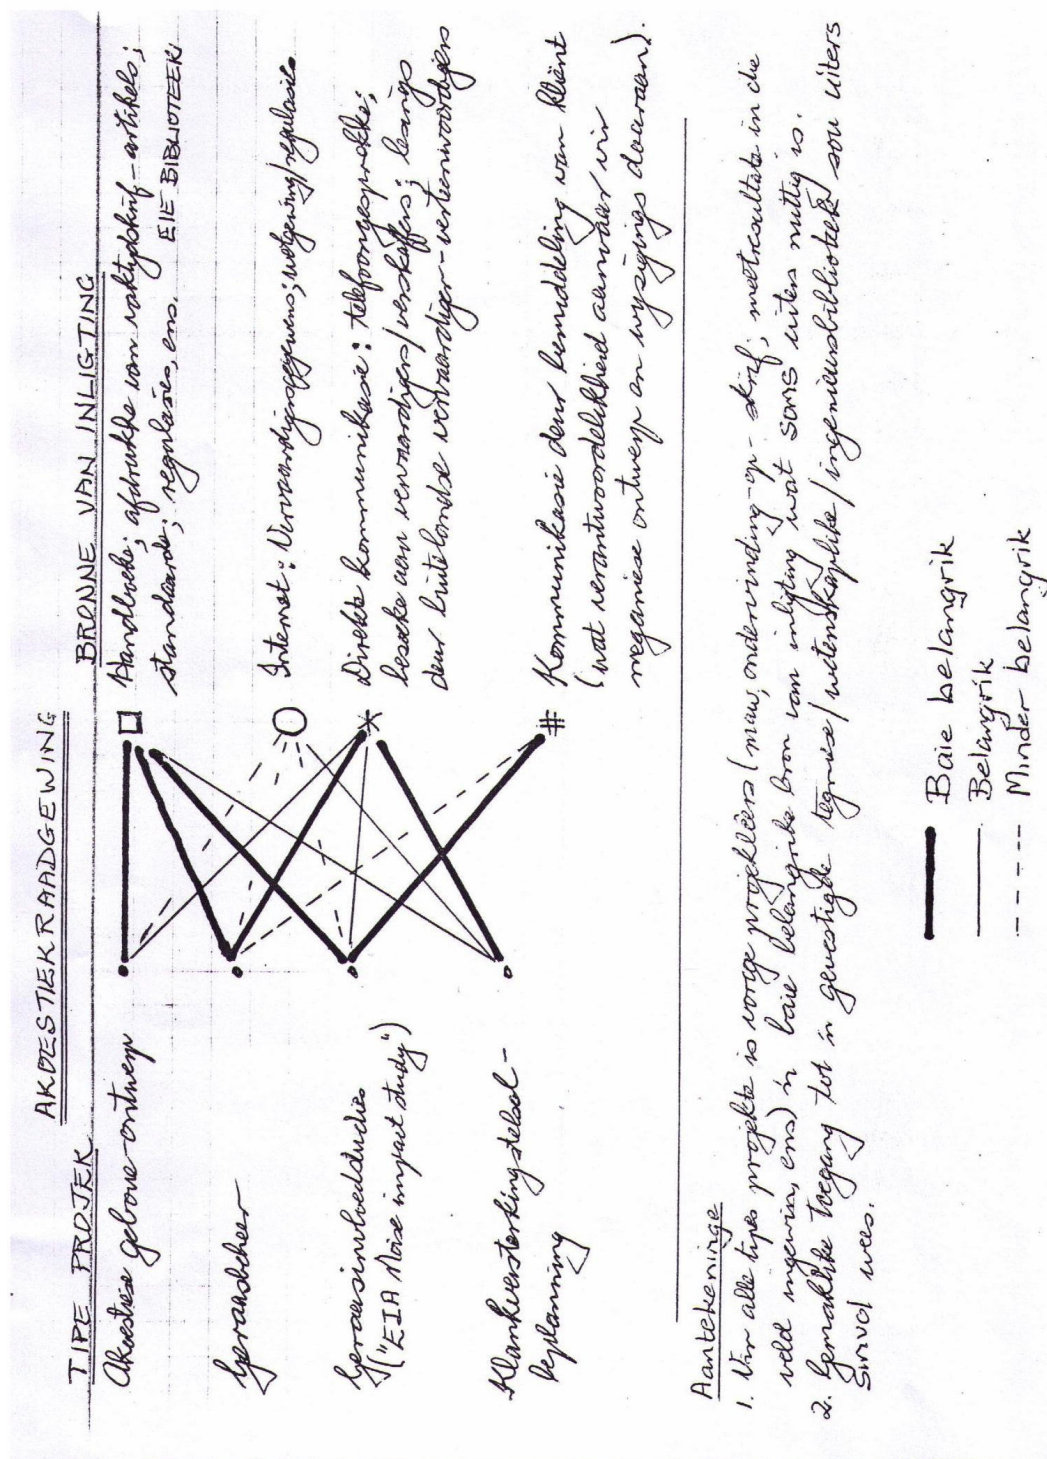 AKOESTIEKRAADGEWING
TIPE PROJEK
BRONNE VAN INLIGTING
Akoestiese gebou-ontwerp
Geraasbeheer
Geraasinvloedstudies
("EIA Noise impact study")
Klankversterkingstelsel-
beplanning
Handboeke; afdrukke van vaktydskrif-artikels;
standaarde; regulasies, ens. EIE BIBLIOTEEK
Internet: Vervaardigersgegewens; wetgewing/regulasies
Direkte kommunikasie: telefoongesprekke;
besoeke aan vervaardigers/verskaffers; lesings
deur buitelandse vervaardiger-verteenwoordigers
Kommunikasie deur bemiddeling van kliënt
(wat verantwoordelikheid aanvaar vir
meganiese ontwerp en wysigings daaraan).
Aantekeninge
1. Vir alle tipes projekte is vorige projeklêers (maw, ondervinding-op-skrif; meetresultate in die
veld ingewin, ens) 'n baie belangrike bron van inligting wat soms uiters nuttig is.
2. Gemaklike toegang tot 'n gevestigde tegniese/wetenskaplike/ingenieursbiblioteek sou uiters
sinvol wees.
Baie belangrik
Belangrik
Minder belangrik